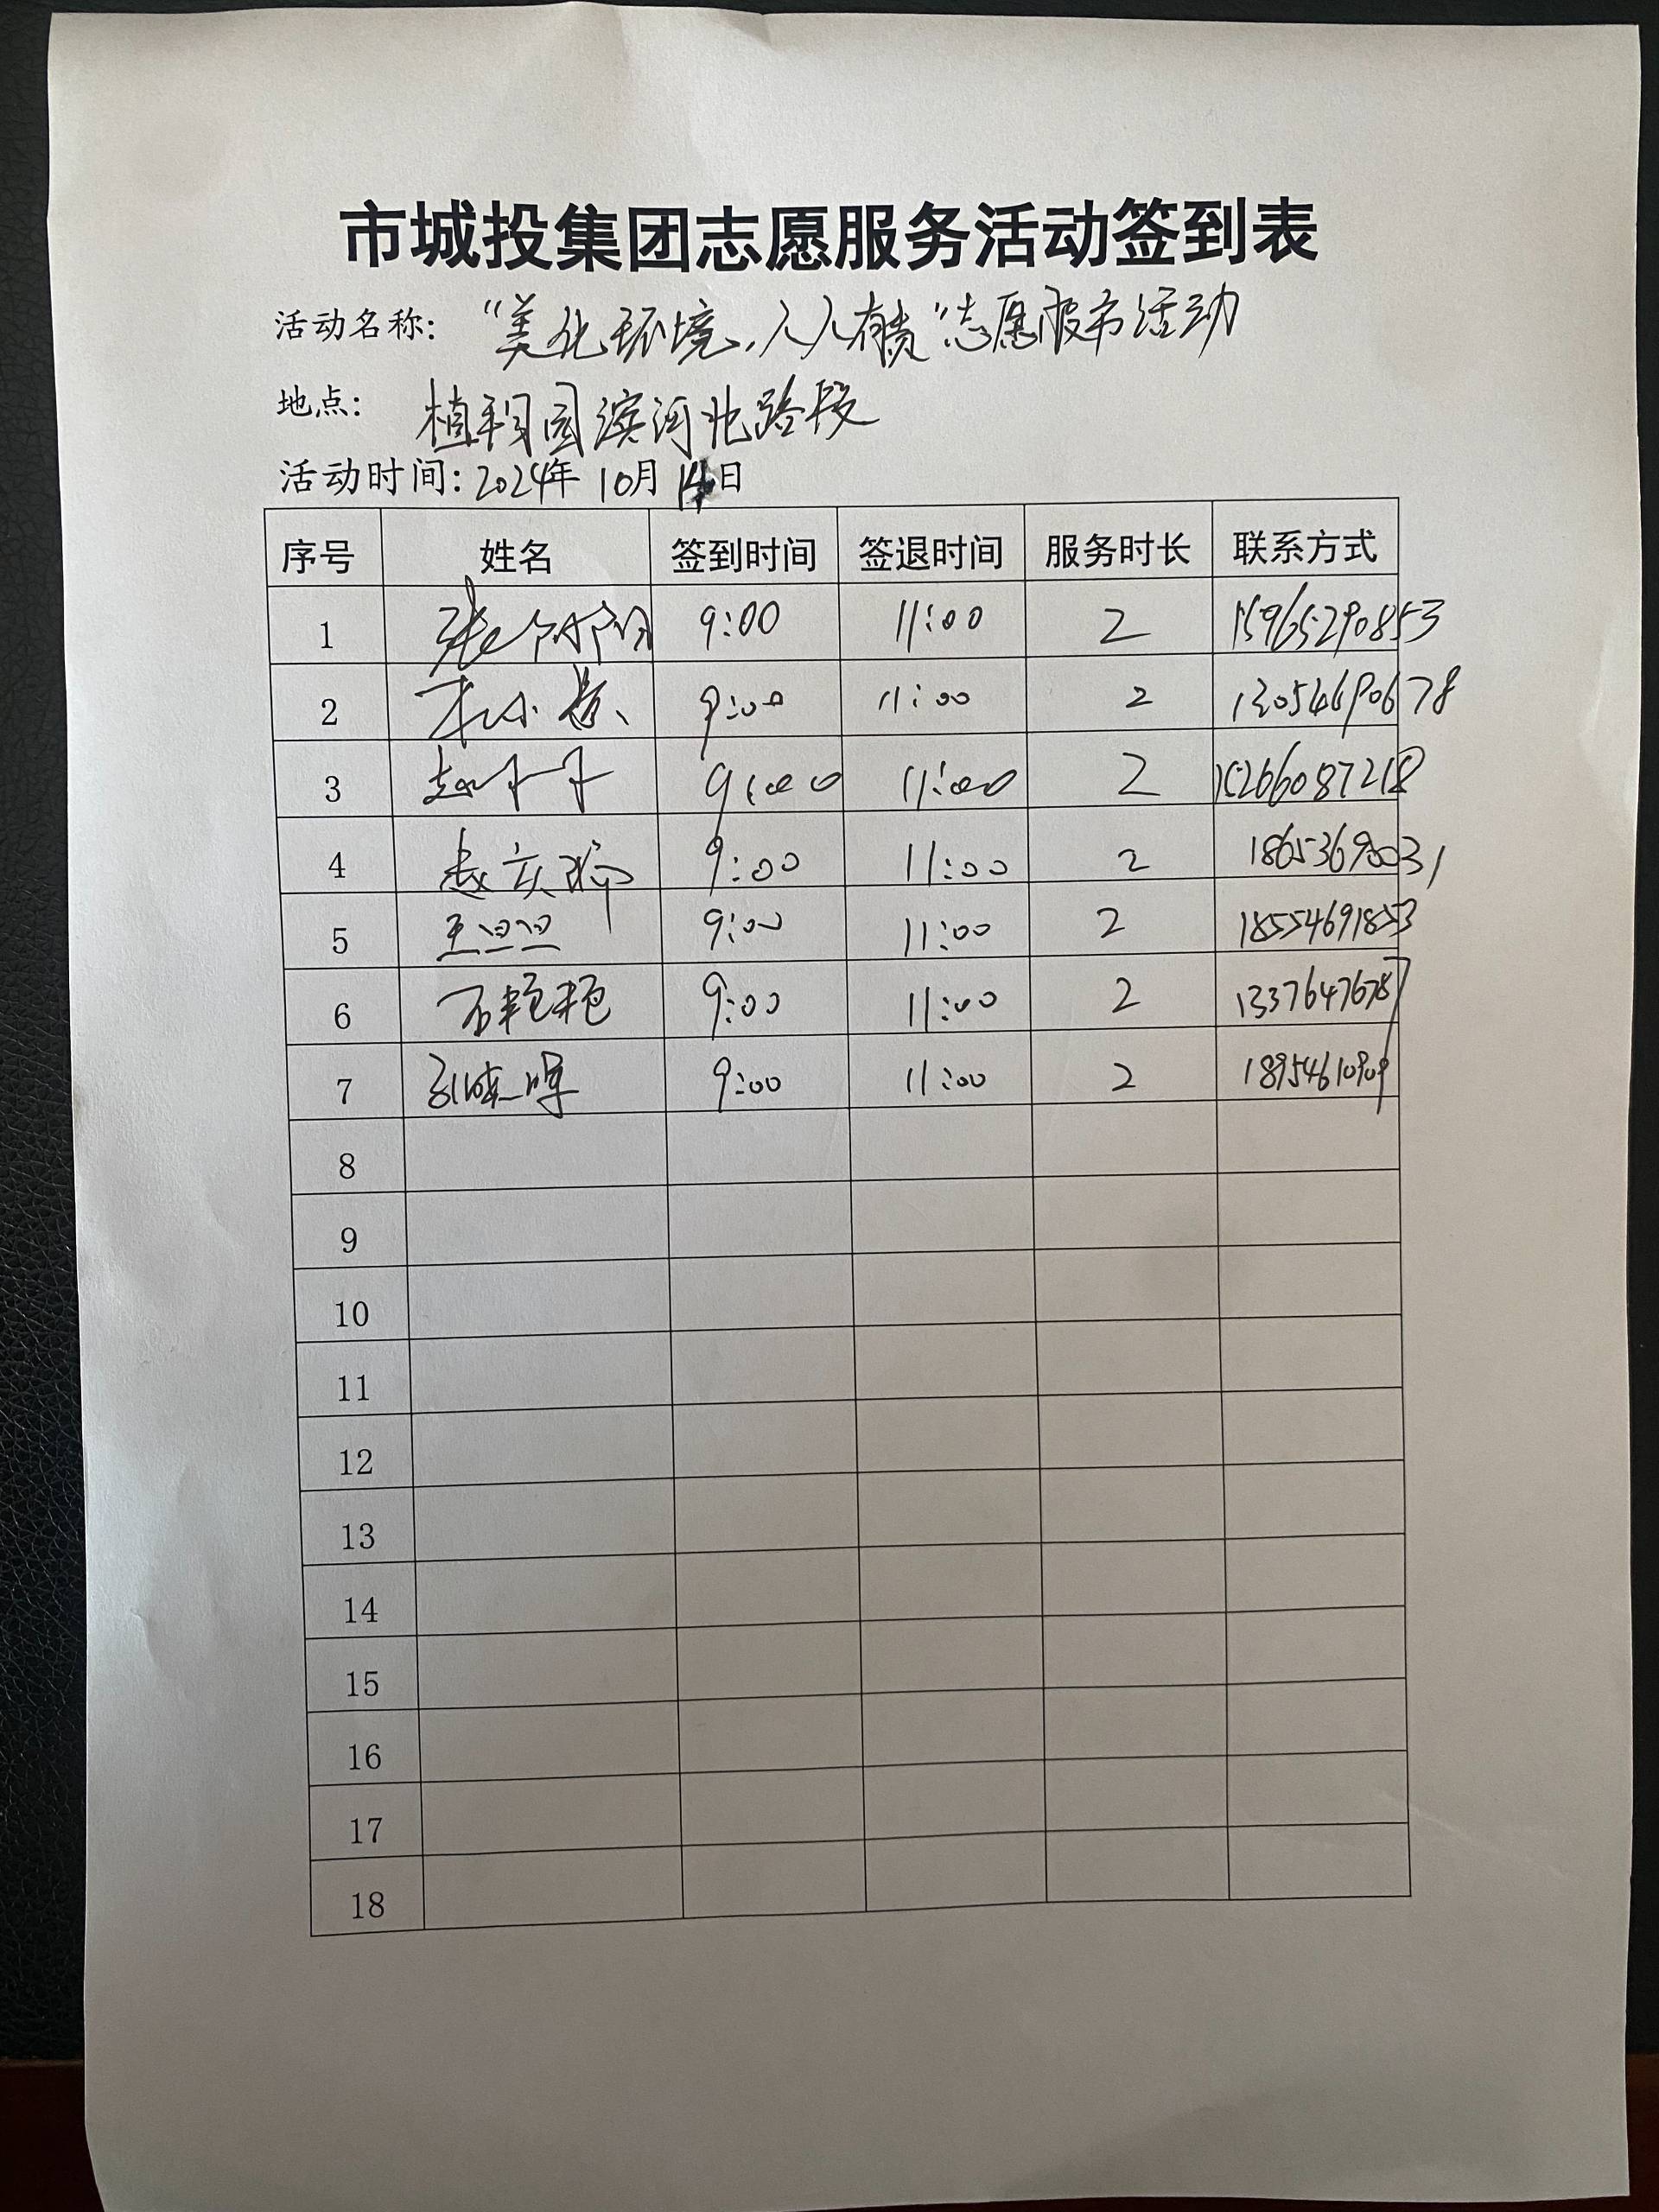 市城投集团志愿服务活动签到表
活动名称: “美化环境,人人有责”志愿服务活动
地点: 植物园滨河北路段
活动时间: 2024年 10月 14日
序号 姓名 签到时间 签退时间 服务时长 联系方式
1 张 9:00 11:00 2 15965290853
2 9:00 11:00 2 13054690678
3 赵 9:00 11:00 2 15266087218
4 9:00 11:00 2
5 王 9:00 11:00 2 18554691853
6 石艳艳 9:00 11:00 2 13376476787
7 9:00 11:00 2 18954610909
8
9
10
11
12
13
14
15
16
17
18